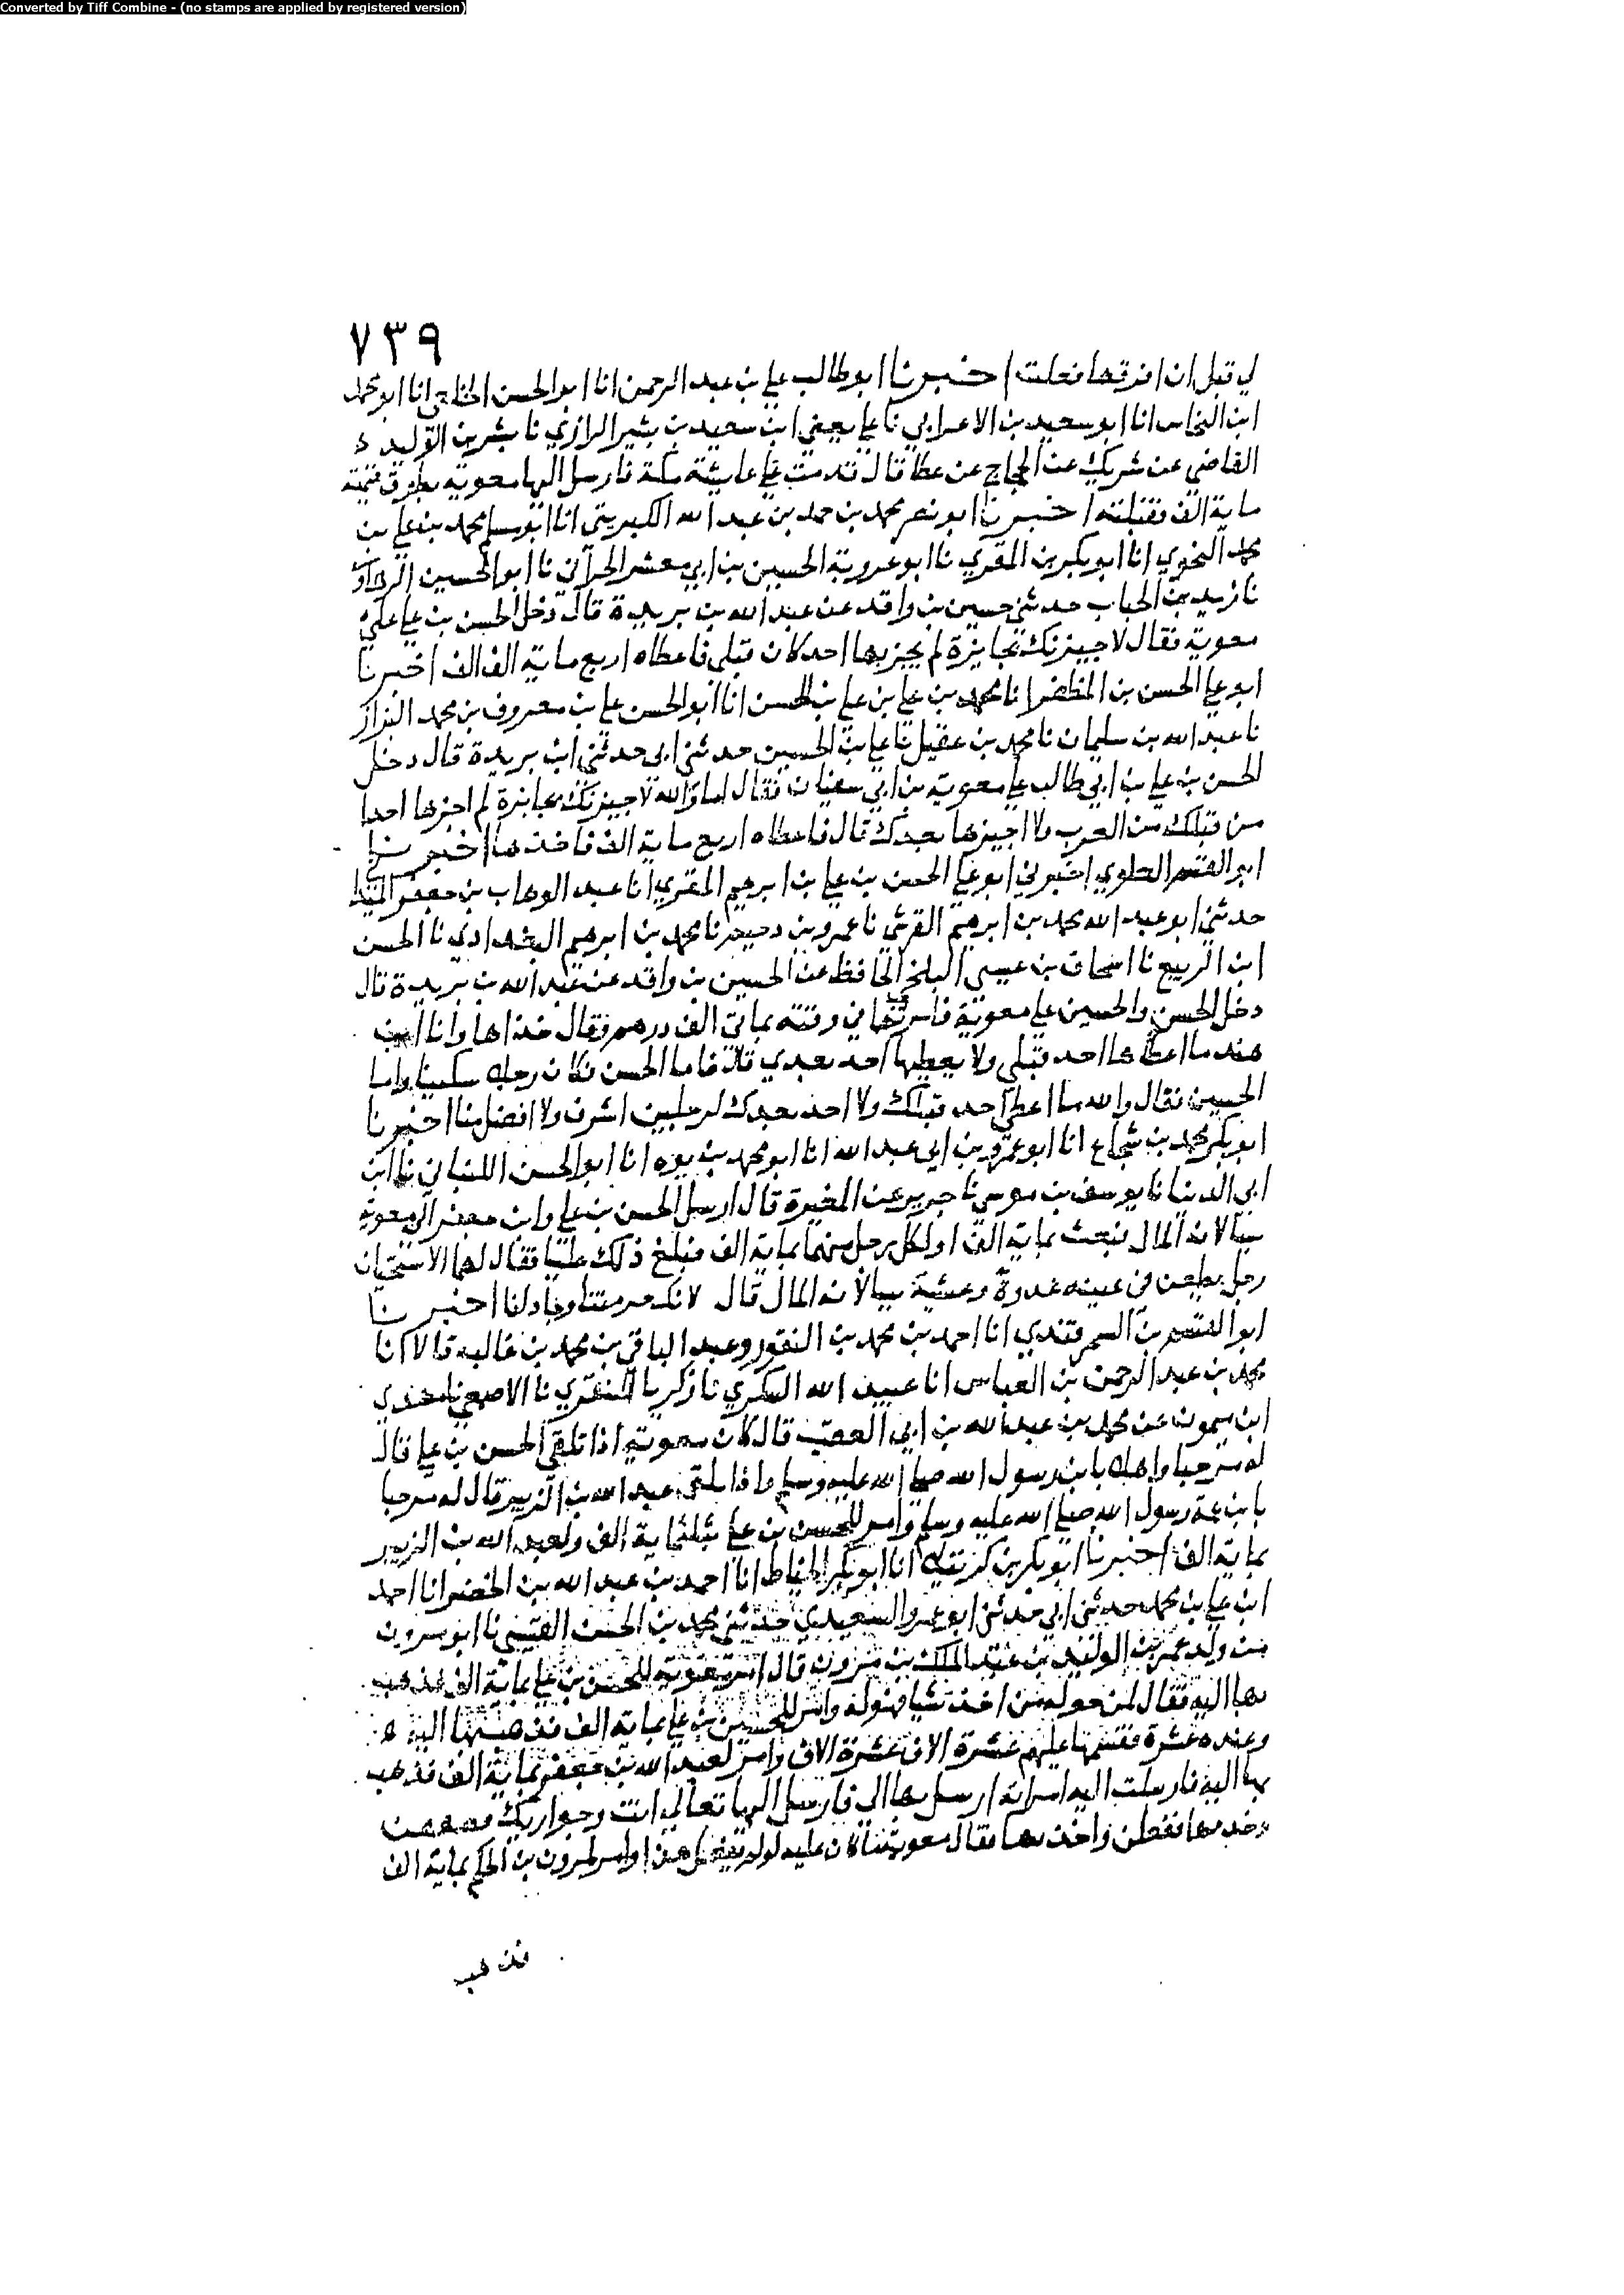 Converted by Tiff Combine - (no stamps are applied by registered version)
٧٣٩
لي قبل ان افرقها فعلت اخبرنا ابو طالب علي بن عبد الرحمن انا ابو الحسن الخلعي انا ابو محمد
ابن النحاس انا ابو سعيد بن الاعرابي نا علي يعني ابن سعيد بن بشير الرازي نا بشر بن الوليد
القاضي عن شريك عن الحجاج عن عطا قال قدمت علي عايشة مكة فارسل اليها معوية بطوق قيمته
ماية الف فقبلته اخبرنا ابو نصر محمد بن حمد بن عبد الله الكبريتي انا ابو مسلم محمد بن علي بن
محمد النحوي انا ابو بكر بن المقري نا ابو عروبة الحسين بن ابي معشر الحراني نا ابو الحسين الرهاوي
نا زيد بن الحباب حدثني حسين بن واقد عن عبد الله بن بريدة قال دخل الحسن بن علي علي
معوية فقال لاجيزنك بجايزة لم يجز بها احد كان قبلي فاعطاه اربع ماية الف الف اخبرنا
ابو علي الحسن بن المظفر انا محمد بن علي بن علي بن الحسن انا ابو الحسن علي بن معروف بن محمد البزاز
نا عبد الله بن سليمان نا محمد بن عقيل نا علي بن الحسين حدثني ابي حدثني ابن بريدة قال دخل
الحسن بن علي بن ابي طالب علي معوية بن ابي سفيان فقال اما والله لاجيزنك بجايزة لم اجزها احدا
من قبلك من العرب ولا اجيزها بعدك قال فاعطاه اربع ماية الف فاخذها اخبرنا
ابو القسم العلوي اخبرني ابو علي الحسن بن علي بن ابرهيم المقري انا عبد الوهاب بن جعفر الميداني
حدثني ابو عبد الله محمد بن ابرهيم القرشي نا عمرو بن دحيم نا محمد بن ابرهيم البغدادي نا الحسن
ابن الربيع نا اسحاق بن عيسى البلخي الحافظ عن الحسين بن واقد عن عبد الله بن بريدة قال
دخل الحسن والحسين علي معوية فامر لهما في وقته بمايتي الف درهم فقال خذاها وانا ابن
هند ما اعطاها احد قبلي ولا يعطيها احد بعدي قال فاما الحسن فكان رجلا سكيتا واما
الحسين فقال والله ما اعطي احد قبلك ولا احد بعدك لرجلين اشرف ولا افضل منا اخبرنا
ابو بكر محمد بن شجاع انا ابو عمرو بن ابي عبد الله انا ابو محمد بن يوه انا ابو الحسن اللنباني نا ابن
ابي الدنيا نا يوسف بن موسى نا جرير عن المغيرة قال ارسل الحسن بن علي وابن جعفر الي معوية
يسالانه المال فبعث بماية الف او لكل رجل منهما بماية الف فبلغ ذلك عليا فقال لهما الا تستحيان
رجل يطعن في عينه غدوة وعشية يسالانه المال قال لانك حرمتنا وجاد لنا اخبرنا
ابو القسم بن السمرقندي انا احمد بن محمد بن النقور وعبد الباقي بن محمد بن غالب قالا انا
محمد بن عبد الرحمن بن العباس انا عبيد الله السكري نا زكريا المنقري نا الاصمعي نا مهدي
ابن ميمون عن محمد بن عبد الله بن ابي قال كان معوية اذا تلقي الحسن بن علي قال
له مرحبا واهلا بابن رسول الله صلى الله عليه وسلم واذا يلقى عبد الله بن الزبير قال له مرحبا
بابن عمة رسول الله صلى الله عليه وسلم وامر للحسن بن علي بثلثماية الف ولعبد الله بن الزبير
بماية الف اخبرنا ابو بكر بن انا ابو بكر الخياط انا احمد بن عبد الله بن الخضر انا احمد
ابن علي بن محمد حدثني ابي حدثني ابو عمرو السعيدي حدثني محمد بن نا ابو مروان
من ولد عمر بن الوليد بن عبد الملك بن مروان قال امر معوية للحسن بن علي بماية الف فذهب
بها اليه فقال لمن حوله من اخذ شيا فهو له وامر للحسين بن علي بماية الف فذهب بها اليه
وعنده عشرة فقسمها عليهم عشرة الاف عشرة الاف وامر لعبد الله بن جعفر بماية الف فذهب
بها اليه فارسلت اليه امراته ارسل بها الي فارسل اليها تعالي انت وجواريك
ففعلن واخذتها فقال معوية ما كان عليه لو لم يفعل هذا وامر لمرون بن الحكم بماية الف
فذهب